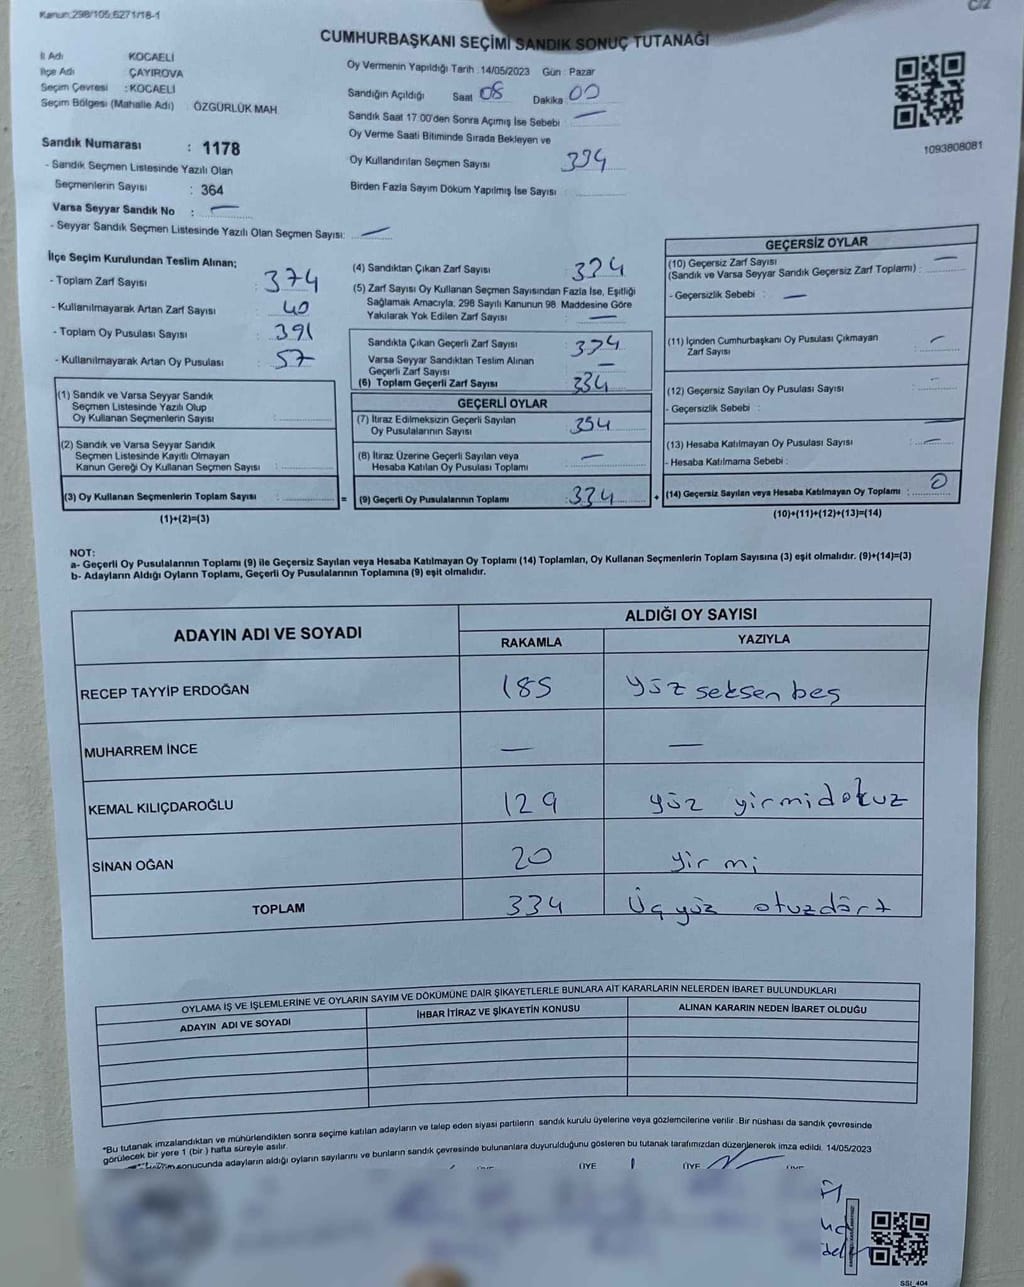 Kanun:298/105;6271/18-1
C/2
CUMHURBAŞKANI SEÇİMİ SANDIK SONUÇ TUTANAĞI
İl Adı KOCAELİ
İlçe Adı ÇAYIROVA
Seçim Çevresi : KOCAELİ
Seçim Bölgesi (Mahalle Adı) : ÖZGÜRLÜK MAH.
Sandık Numarası : 1178
- Sandık Seçmen Listesinde Yazılı Olan
Seçmenlerin Sayısı : 364
Varsa Seyyar Sandık No : —
- Seyyar Sandık Seçmen Listesinde Yazılı Olan Seçmen Sayısı: —
Oy Vermenin Yapıldığı Tarih : 14/05/2023 Gün : Pazar
Sandığın Açıldığı Saat 08 Dakika 00
Sandık Saat 17.00'den Sonra Açımış İse Sebebi : —
Oy Verme Saati Bitiminde Sırada Bekleyen ve
Oy Kullandırılan Seçmen Sayısı 334
Birden Fazla Sayım Döküm Yapılmış İse Sayısı :
1093808081
İlçe Seçim Kurulundan Teslim Alınan;
- Toplam Zarf Sayısı : 374
- Kullanılmayarak Artan Zarf Sayısı : 40
- Toplam Oy Pusulası Sayısı : 391
- Kullanılmayarak Artan Oy Pusulası : 57
(1) Sandık ve Varsa Seyyar Sandık
Seçmen Listesinde Yazılı Olup
Oy Kullanan Seçmenlerin Sayısı :
(2) Sandık ve Varsa Seyyar Sandık
Seçmen Listesinde Kayıtlı Olmayan
Kanun Gereği Oy Kullanan Seçmen Sayısı :
(3) Oy Kullanan Seçmenlerin Toplam Sayısı :
(1)+(2)=(3)
(4) Sandıktan Çıkan Zarf Sayısı : 334
(5) Zarf Sayısı Oy Kullanan Seçmen Sayısından Fazla İse, Eşitliği
Sağlamak Amacıyla, 298 Sayılı Kanunun 98. Maddesine Göre
Yakılarak Yok Edilen Zarf Sayısı : —
Sandıkta Çıkan Geçerli Zarf Sayısı : 334
Varsa Seyyar Sandıktan Teslim Alınan
Geçerli Zarf Sayısı : —
(6) Toplam Geçerli Zarf Sayısı 334
GEÇERLİ OYLAR
(7) İtiraz Edilmeksizin Geçerli Sayılan
Oy Pusulalarının Sayısı : 334
(8) İtiraz Üzerine Geçerli Sayılan veya
Hesaba Katılan Oy Pusulası Toplamı : —
= (9) Geçerli Oy Pusulalarının Toplamı : 334 +
GEÇERSİZ OYLAR
(10) Geçersiz Zarf Sayısı
(Sandık ve Varsa Seyyar Sandık Geçersiz Zarf Toplamı) : —
- Geçersizlik Sebebi : —
(11) İçinden Cumhurbaşkanı Oy Pusulası Çıkmayan
Zarf Sayısı : —
(12) Geçersiz Sayılan Oy Pusulası Sayısı : —
- Geçersizlik Sebebi :
(13) Hesaba Katılmayan Oy Pusulası Sayısı : —
- Hesaba Katılmama Sebebi :
(14) Geçersiz Sayılan veya Hesaba Katılmayan Oy Toplamı : 0
(10)+(11)+(12)+(13)=(14)
NOT:
a- Geçerli Oy Pusulalarının Toplamı (9) ile Geçersiz Sayılan veya Hesaba Katılmayan Oy Toplamı (14) Toplamları, Oy Kullanan Seçmenlerin Toplam Sayısına (3) eşit olmalıdır. (9)+(14)=(3)
b- Adayların Aldığı Oyların Toplamı, Geçerli Oy Pusulalarının Toplamına (9) eşit olmalıdır.
ADAYIN ADI VE SOYADI ALDIĞI OY SAYISI
RAKAMLA YAZIYLA
RECEP TAYYİP ERDOĞAN 185 yüz seksen beş
MUHARREM İNCE — —
KEMAL KILIÇDAROĞLU 129 yüz yirmidokuz
SİNAN OĞAN 20 yirmi
TOPLAM 334 Üç yüz otuzdört
OYLAMA İŞ VE İŞLEMLERİNE VE OYLARIN SAYIM VE DÖKÜMÜNE DAİR ŞİKAYETLERLE BUNLARA AİT KARARLARIN NELERDEN İBARET BULUNDUKLARI
ADAYIN ADI VE SOYADI İHBAR İTİRAZ VE ŞİKAYETİN KONUSU ALINAN KARARIN NEDEN İBARET OLDUĞU
*Bu tutanak imzalandıktan ve mühürlendikten sonra seçime katılan adayların ve talep eden siyasi partilerin sandık kurulu üyelerine veya gözlemcilerine verilir. Bir nüshası da sandık çevresinde
görülecek bir yere 1 (bir) hafta süreyle asılır.
sonucunda adayların aldığı oyların sayılarını ve bunların sandık çevresinde bulunanlara duyurulduğunu gösteren bu tutanak tarafımızdan düzenlenerek imza edildi. 14/05/2023
ÜYE ÜYE
SSI_404